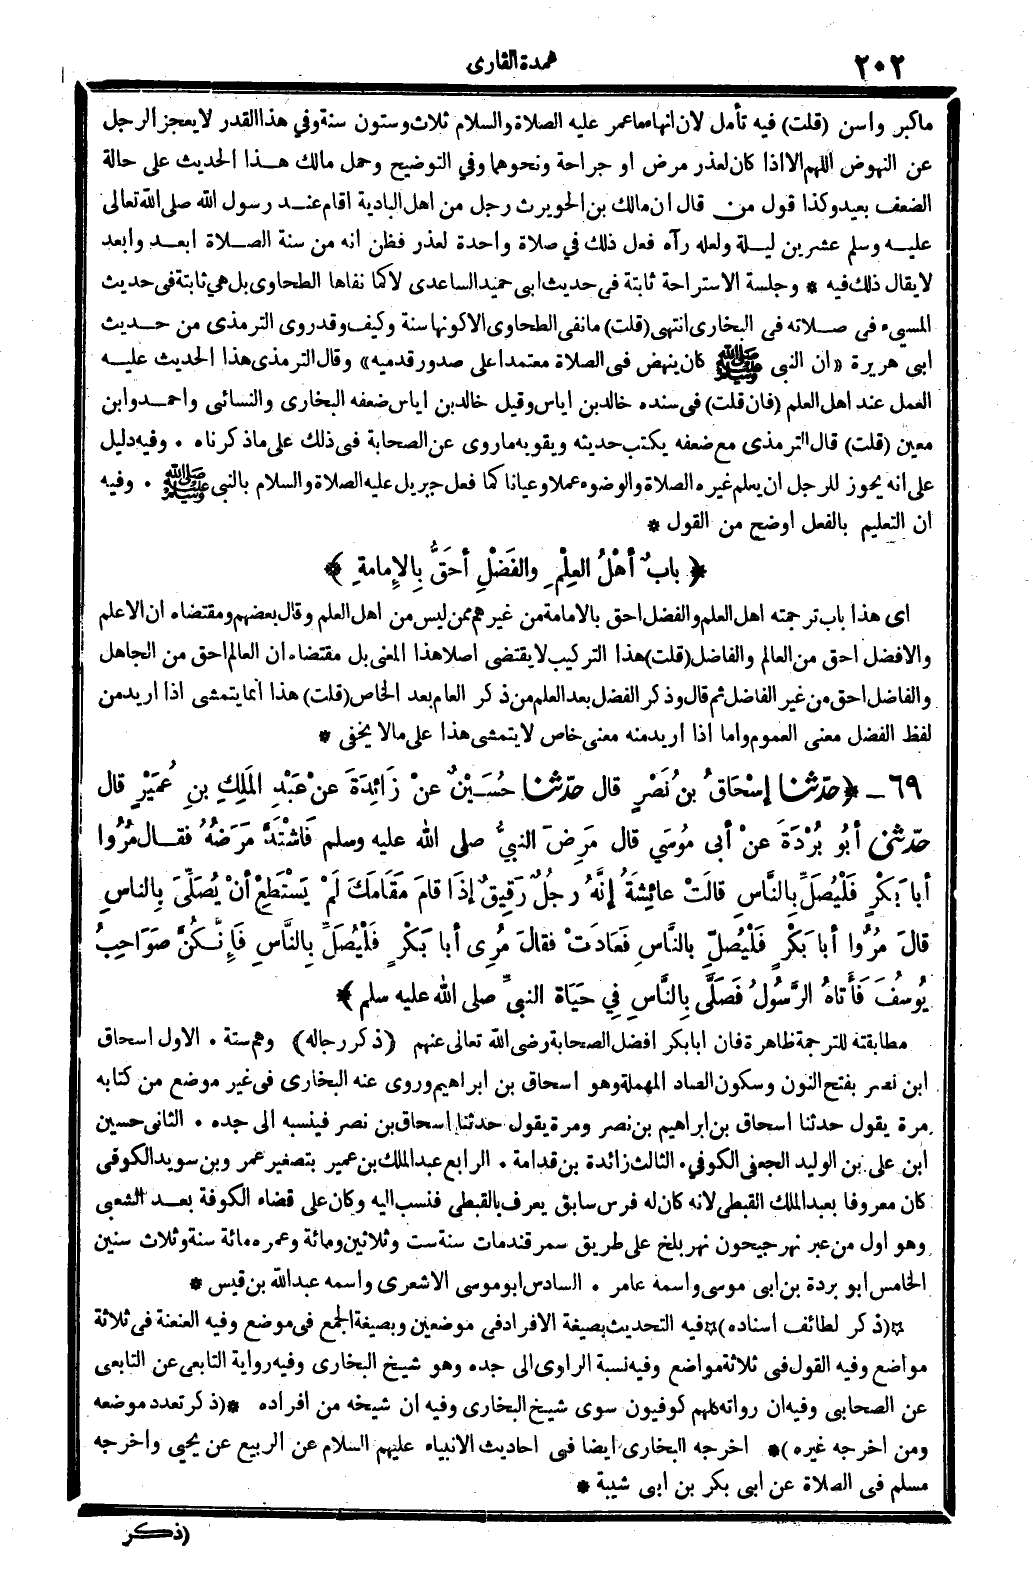 ٢٠٢
عمدة القارى
ماكبر واسن (قلت) فيه تأمل لان انهاء ماعمر عليه الصلاة والسلام ثلاث وستون سنة وفي هذا القدر لا يعجز الرجل
عن النهوض اللهم الا اذا كان لعذر مرض او جراحة ونحوهما وفي التوضيح وحمل مالك هذا الحديث على حالة
الضعف بعيد وكذا قول من قال ان مالك بن الحويرث رجل من اهل البادية اقام عند رسول الله صلى الله تعالى
عليه وسلم عشرين ليلة ولعله رآه فعل ذلك في صلاة واحدة لعذر فظن انه من سنة الصلاة ابعد وابعد
لا يقال ذلك فيه * وجلسة الاستراحة ثابتة فى حديث ابى حميد الساعدى لا كما نفاها الطحاوى بل هي ثابتة فى حديث
المسيء فى صلاته فى البخارى انتهى (قلت) مانفى الطحاوى الا كونها سنة وكيف وقد روى الترمذى من حديث
ابى هريرة «ان النبى ﷺ كان ينهض فى الصلاة معتمدا على صدور قدميه» وقال الترمذى هذا الحديث عليه
العمل عند اهل العلم (فان قلت) فى سنده خالد بن اياس وقيل خالد بن اياس ضعفه البخارى والنسائى واحمد وابن
معين (قلت) قال الترمذى مع ضعفه يكتب حديثه ويقويه ماروى عن الصحابة فى ذلك على ماذكرناه . وفيه دليل
على انه يجوز للرجل ان يعلم غيره الصلاة والوضوء عملا وعيانا كما فعل جبريل عليه الصلاة والسلام بالنبى ﷺ . وفيه
ان التعليم بالفعل اوضح من القول *
﴿ بابٌ أهْلُ العِلْمِ والفَضْلِ أحَقُّ بِالإِمامةِ ﴾
اى هذا باب ترجمته اهل العلم والفضل احق بالامامة من غيرهم ممن ليس من اهل العلم وقال بعضهم ومقتضاه ان الاعلم
والافضل احق من العالم والفاضل (قلت) هذا التركيب لا يقتضى اصلا هذا المعنى بل مقتضاه ان العالم احق من الجاهل
والفاضل احق من غير الفاضل ثم قال وذكر الفضل بعد العلم من ذكر العام بعد الخاص (قلت) هذا انما يتمشى اذا اريد من
لفظ الفضل معنى العموم واما اذا اريد منه معنى خاص لا يتمشى هذا على مالا يخفى *
٦٩ ــ ﴿حدّثنا إسْحَاقُ بن نَصْرٍ قال حدّثنا حُسَيْنٌ عنْ زَائِدَةَ عنْ عَبْدِ المَلِكِ بنِ عُمَيْرٍ قال
حدّثنى أبُو بُرْدَةَ عنْ أبى مُوسَي قال مَرِضَ النبيُّ صلى الله عليه وسلم فَاشْتَدَّ مَرَضُهُ فقال مُرُوا
أبا بَكْرٍ فَلْيُصَلِّ بِالنَّاسِ قالَتْ عائِشَةُ إنَّهُ رجُلٌ رَقِيقٌ إذَا قامَ مَقَامَكَ لَمْ يَسْتَطِعْ أنْ يُصَلِّىَ بِالناسِ
قالَ مُرُوا أبا بَكْرٍ فَلْيُصَلِّ بالنَّاسِ فَعادَتْ فقالَ مُرِى أبا بَكْرٍ فَلْيُصَلِّ بِالنَّاسِ فَإِنَّكُنَّ صَوَاحِبُ
يُوسُفَ فَأَتاهُ الرَّسُولُ فَصَلَّى بِالنَّاسِ فِي حَيَاةِ النبيِّ صلى الله عليه سلم﴾
مطابقته للترجمة ظاهرة فان ابابكر افضل الصحابة رضى الله تعالى عنهم (ذكر رجاله) وهم ستة . الاول اسحاق
ابن نصر بفتح النون وسكون الصاد المهملة وهو اسحاق بن ابراهيم وروى عنه البخارى فى غير موضع من كتابه
مرة يقول حدثنا اسحاق بن ابراهيم بن نصر ومرة يقول حدثنا اسحاق بن نصر فينسبه الى جده . الثانى حسين
ابن على بن الوليد الجعفى الكوفي . الثالث زائدة بن قدامة . الرابع عبد الملك بن عمير بتصغير عمر وبن سويد الكوفى
كان معروفا بعبد الملك القبطى لانه كان له فرس سابق يعرف بالقبطى فنسب اليه وكان على قضاء الكوفة بعد الشعبى
وهو اول من عبر نهر جيحون نهر بلخ على طريق سمرقند مات سنة ست وثلاثين ومائة وعمره مائة سنة وثلاث سنين
الخامس ابو بردة بن ابى موسى واسمه عامر . السادس ابو موسى الاشعرى واسمه عبد الله بن قيس *
*(ذكر لطائف اسناده)* فيه التحديث بصيغة الافراد فى موضعين وبصيغة الجمع فى موضع وفيه العنعنة فى ثلاثة
مواضع وفيه القول فى ثلاثة مواضع وفيه نسبة الراوى الى جده وهو شيخ البخارى وفيه رواية التابعى عن التابعى
عن الصحابى وفيه ان رواته كلهم كوفيون سوى شيخ البخارى وفيه ان شيخه من افراده *(ذكر تعدد موضعه
ومن اخرجه غيره)* اخرجه البخارى ايضا فى احاديث الانبياء عليهم السلام عن الربيع عن يحيى واخرجه
مسلم فى الصلاة عن ابى بكر بن ابى شيبة *
(ذكر